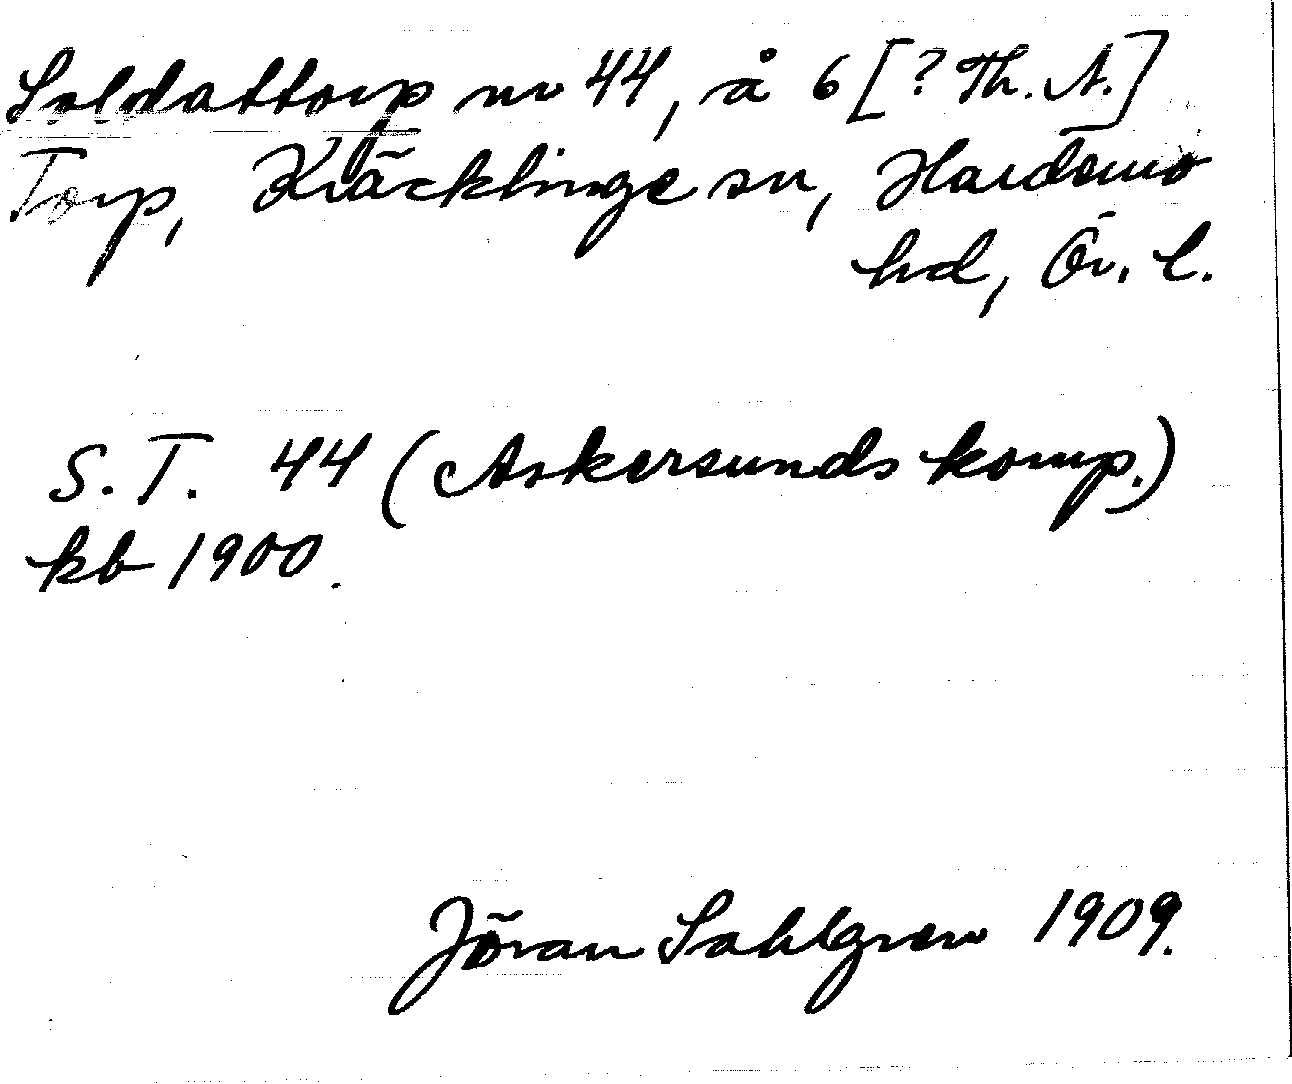 Soldattorp nr 44, å 6 [? Th. A.]
Torp, Kräcklinge sn, Hardemo
hd, Ör. l.
S. T. 44 (Askersunds komp.)
kb 1900.
Jöran Sahlgren 1909.